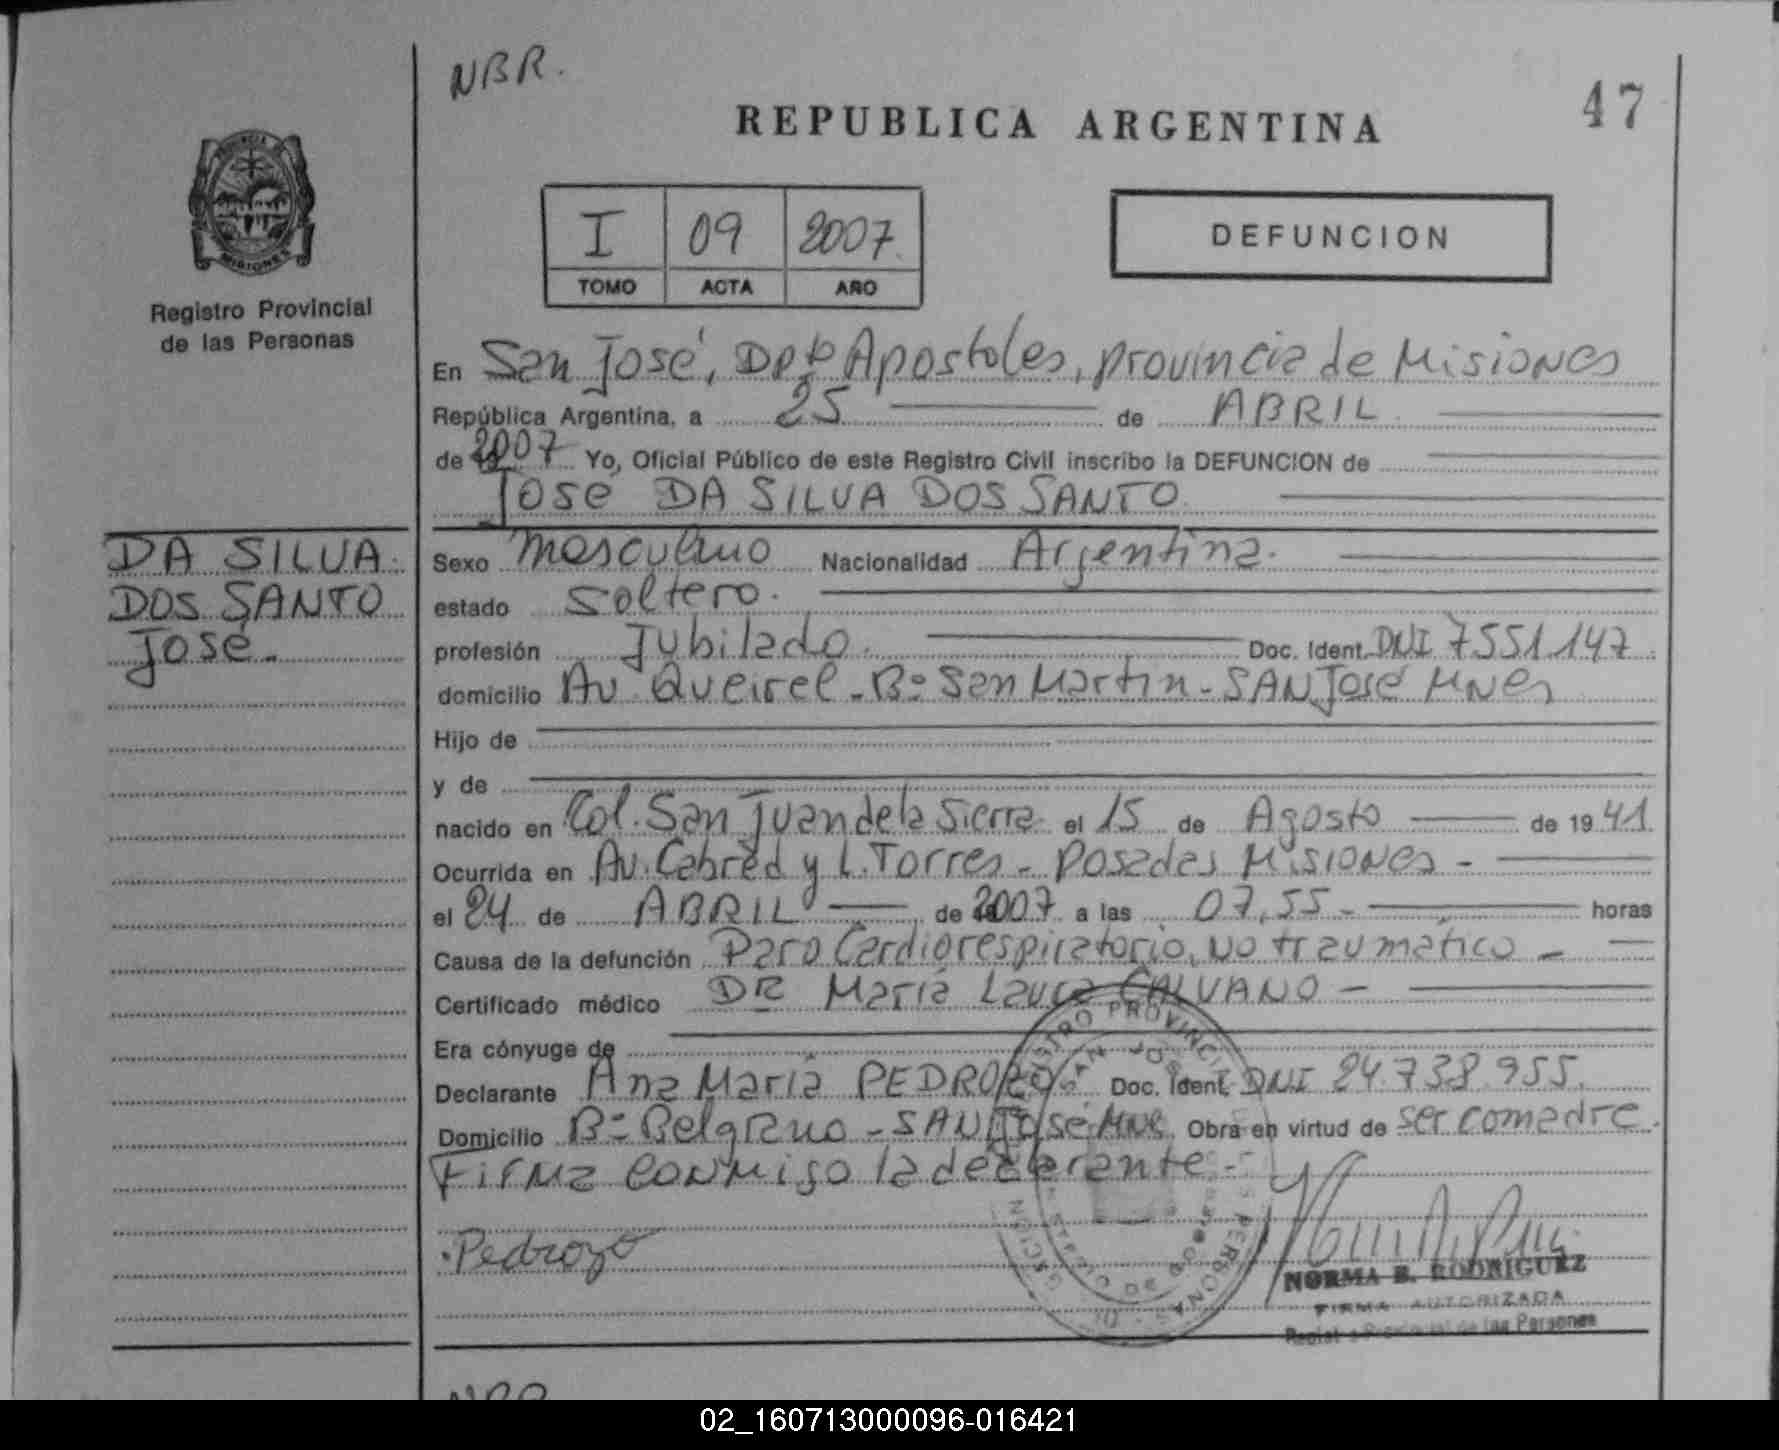 NBR.
47
REPUBLICA ARGENTINA
I 09 2007.
TOMO ACTA AÑO
DEFUNCION
PROVINCIA DE
MISIONES
Registro Provincial
de las Personas
En San José, Dpto Apostoles, provincia de Misiones
República Argentina, a 25 de ABRIL
de 2007 Yo, Oficial Público de este Registro Civil inscribo la DEFUNCION de
José DA SILVA DOS SANTO.
DA SILVA
DOS SANTO
José.
Sexo Masculino Nacionalidad Argentina.
estado Soltero.
profesión Jubilado. Doc. Ident. DNI 7551.147
domicilio Av. Queirel - Bº San Martin - SAN José Mnes
Hijo de
y de
nacido en Col. San Juan de la Sierra el 15 de Agosto de 19 41
Ocurrida en Av. Cabred y L. Torres - Posadas Misiones -
el 24 de ABRIL de 2007 a las 07,55 - horas
Causa de la defunción Paro Cardiorespiratorio, no traumático -
Certificado médico DR María Laura GALVANO -
Era cónyuge de
Declarante Ana María PEDROZO Doc. Ident. DNI 24.738.955.
Domicilio Bº Belgrano - SAN José Mnes Obra en virtud de ser comadre.
Firma conmigo la declarante -
Pedrozo
NORMA B. RODRIGUEZ
FIRMA AUTORIZADA
Registro Provincial de las Personas
NBR
02_160713000096-016421